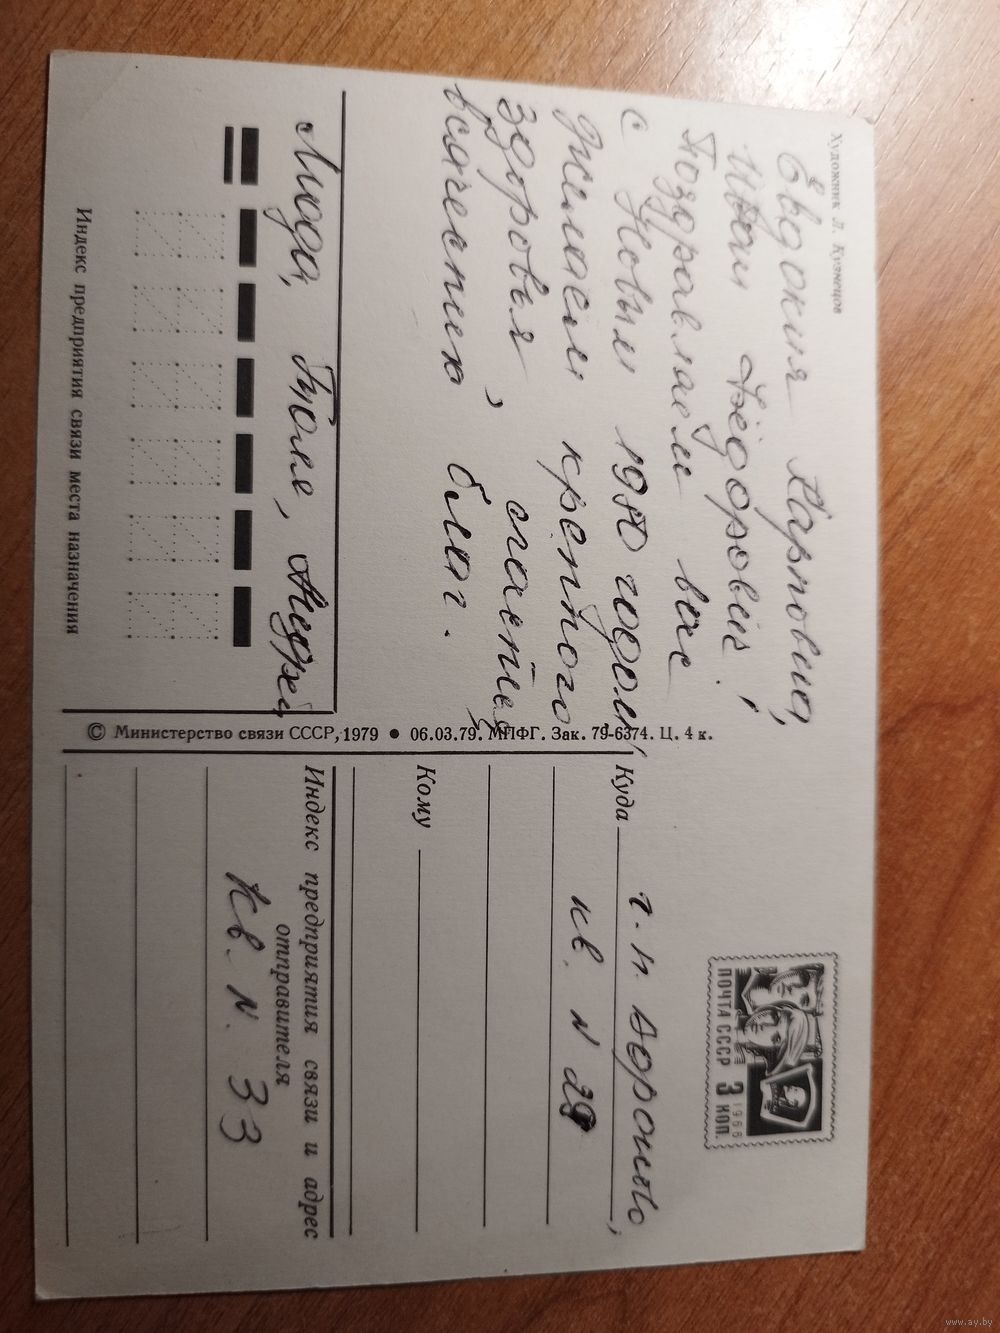 Художник Л. Кузнецов
Евдокия Карповна,
Иван Фёдорович!
Поздравляем вас
с Новым 1980 годом,
желаем крепкого
здоровья, счастья,
всяческих благ.
Люда, Толя, Андрей
Индекс предприятия связи места назначения
© Министерство связи СССР, 1979 ● 06.03.79. МПФГ. Зак. 79-6374. Ц. 4 к.
ПОЧТА СССР 3 КОП.
1966
Куда г.п.
кв. N 29
Кому
Индекс предприятия связи и адрес
отправителя
кв. N. 33
www.ay.by